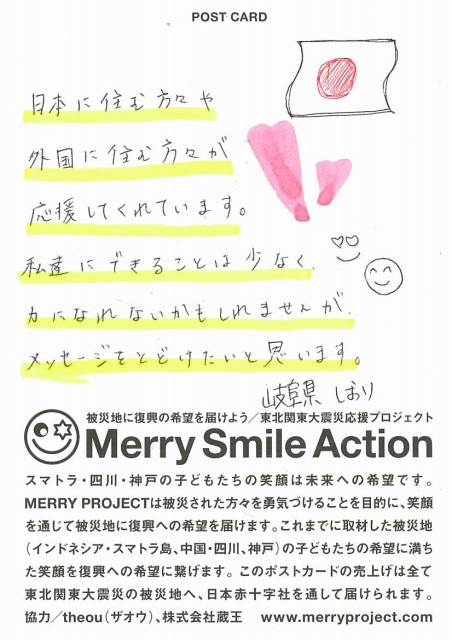 POST CARD
日本に住む方々や
外国に住む方々が
応援してくれています。
私達にできることは少なく、
力になれないかもしれませんが、
メッセージをとどけたいと思います。
岐阜県 しおり
被災地に復興の希望を届けよう／東北関東大震災応援プロジェクト
Merry Smile Action
スマトラ・四川・神戸の子どもたちの笑顔は未来への希望です。
MERRY PROJECTは被災された方々を勇気づけることを目的に、笑顔
を通じて被災地に復興への希望を届けます。これまでに取材した被災地
（インドネシア・スマトラ島、中国・四川、神戸）の子どもたちの希望に満ち
た笑顔を復興への希望に繋げます。このポストカードの売上げは全て
東北関東大震災の被災地へ、日本赤十字社を通して届けられます。
協力／theou（ザオウ）、株式会社蔵王 www.merryproject.com